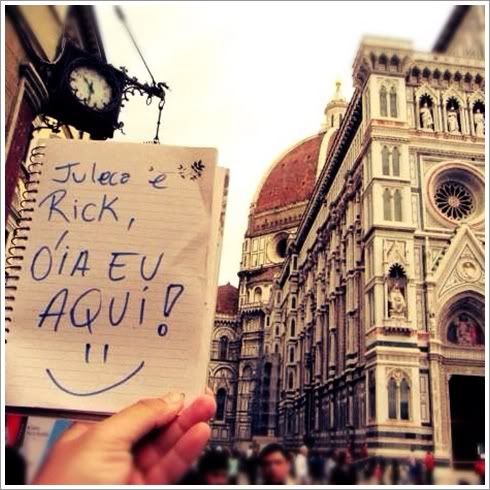 Juleca e
RICK,
ÓIA EU
AQUI!